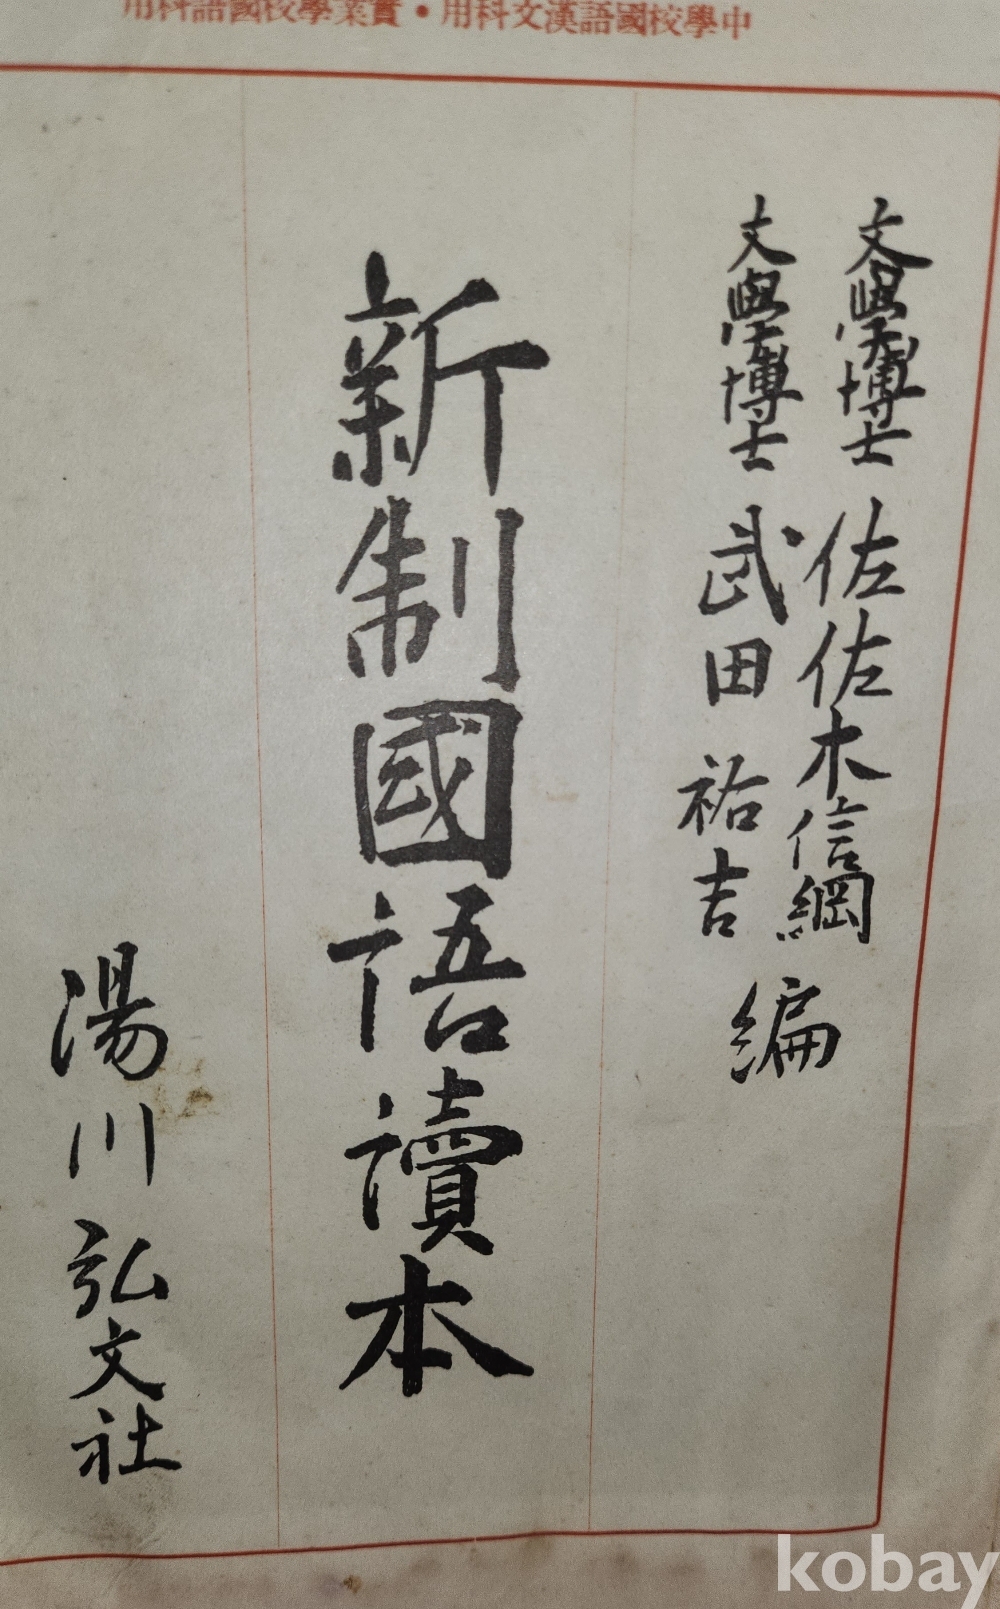 中學校國語漢文科用・實業學校國語科用
文學博士 佐佐木信綱
文學博士 武田祐吉
編
新制國語讀本
湯川弘文社
kobay